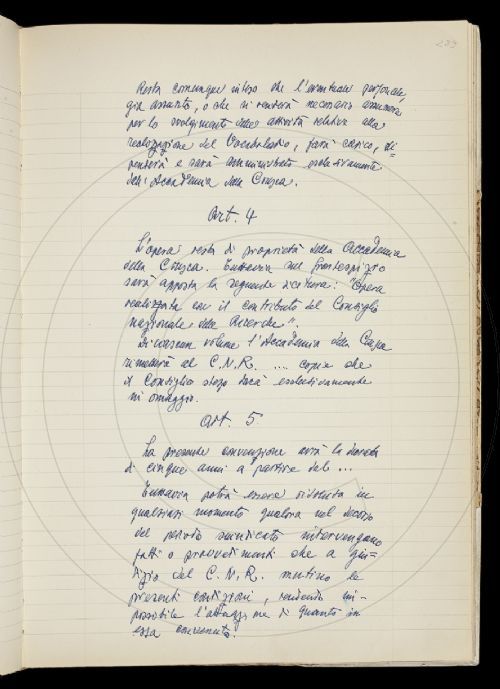 233
Resta comunque inteso che l'eventuale personale
già assunto, o che si renderà necessario assumere
per lo svolgimento delle attività relative alla
realizzazione del Vocabolario, farà carico, di=
penderà e sarà amministrato esclusivamente
dall'Accademia della Crusca.
Art. 4
L'opera resta di proprietà della Accademia
della Crusca. Tuttavia nel frontespizio
sarà apposta la seguente dicitura: "Opera
realizzata con il contributo del Consiglio
Nazionale delle Ricerche".
Di ciascun volume l'Accademia della Crusca
rimetterà al C.N.R. .... copie che
il Consiglio stesso darà esclusivamente
in omaggio.
Art. 5
La presente convenzione avrà la durata
di cinque anni a partire dal ...
Tuttavia potrà essere risolta in
qualsiasi momento qualora nel decorso
del periodo suindicato intervengano
fatti o provvedimenti che a giu=
dizio del C.N.R. mutino le
presenti condizioni, rendendo im-
possibile l'attuazione di quanto in
essa convenuto.